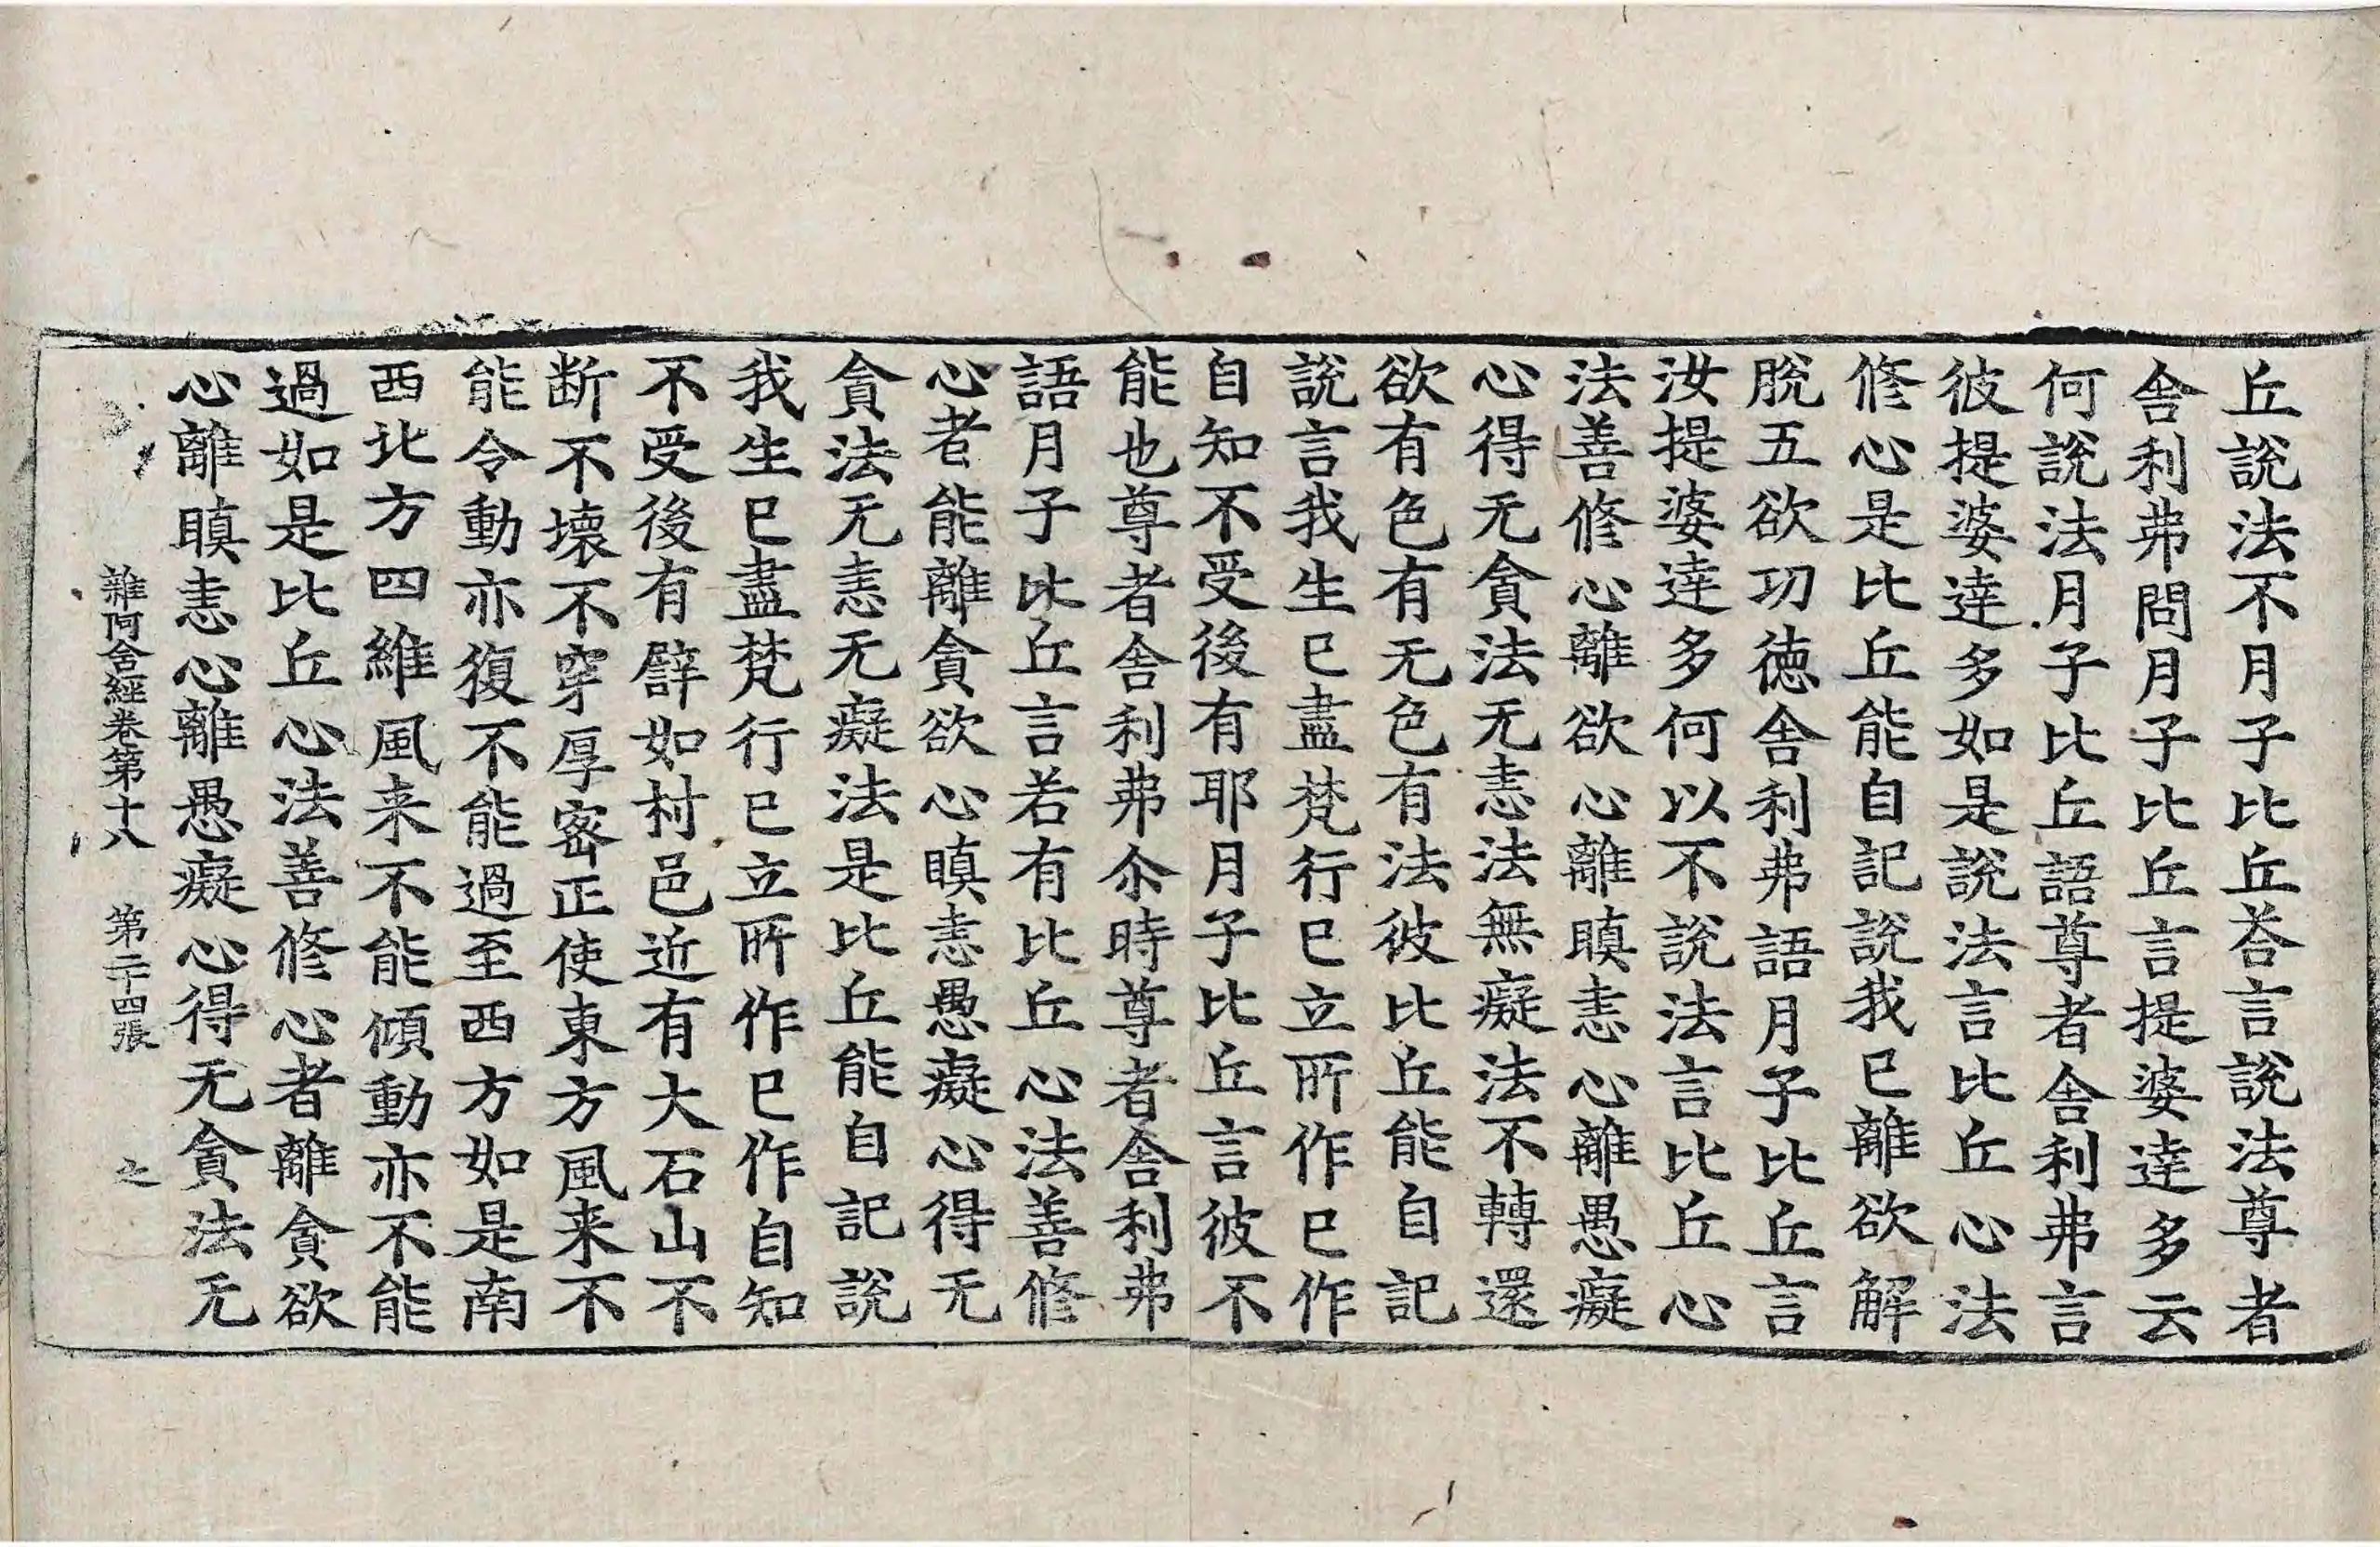 丘說法不月子比丘荅言說法尊者
舎利弗問月子比丘言提婆達多云
何說法月子比丘語尊者舎利弗言
彼提婆達多如是說法言比丘心法
修心是比丘能自記說我已離欲解
脫五欲功徳舎利弗語月子比丘言
汝提婆達多何以不說法言比丘心
法善修心離欲心離瞋恚心離愚癡
心得无貪法无恚法無癡法不轉還
欲有色有无色有法彼比丘能自記
說言我生已盡梵行已立所作已作
自知不受後有耶月子比丘言彼不
能也尊者舎利弗尒時尊者舎利弗
語月子比丘言若有比丘心法善修
心者能離貪欲心瞋恚愚癡心得无
貪法无恚无癡法是比丘能自記說
我生已盡梵行已立所作已作自知
不受後有譬如村邑近有大石山不
断不壊不穿厚宻正使東方風来不
能令動亦復不能過至西方如是南
西北方四維風来不能傾動亦不能
過如是比丘心法善修心者離貪欲
心離瞋恚心離愚癡心得无貪法无
雜阿含經卷第十八 第二十四張 之